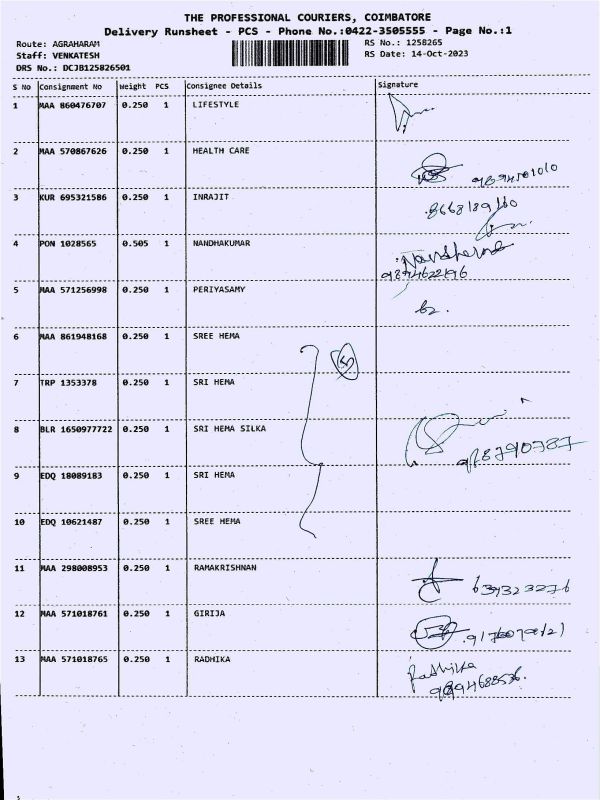 THE PROFESSIONAL COURIERS, COIMBATORE
Delivery Runsheet - PCS - Phone No.:0422-3505555 - Page No.:1
Route: AGRAHARAM RS No.: 1258265
Staff: VENKATESH RS Date: 14-Oct-2023
DRS No.: DCJB125826501
S No Consignment No Weight PCS Consignee Details Signature
1 MAA 860476707 0.250 1 LIFESTYLE
2 MAA 570867626 0.250 1 HEALTH CARE
3 KUR 695321586 0.250 1 INRAJIT
8668189160
4 PON 1028565 0.505 1 NANDHAKUMAR
9894622196
5 MAA 571256998 0.250 1 PERIYASAMY
6 MAA 861948168 0.250 1 SREE HEMA
5
7 TRP 1353378 0.250 1 SRI HEMA
8 BLR 1650977722 0.250 1 SRI HEMA SILKA
9 EDQ 18089183 0.250 1 SRI HEMA
10 EDQ 10621487 0.250 1 SREE HEMA
11 MAA 298008953 0.250 1 RAMAKRISHNAN
12 MAA 571018761 0.250 1 GIRIJA
13 MAA 571018765 0.250 1 RADHIKA
Radhika
9894688536